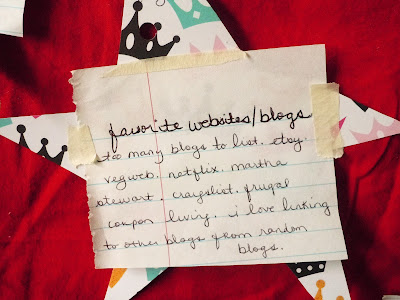 favorite websites/blogs
too many blogs to list. etsy.
vegweb. netflix. martha
stewart. craigslist. frugal
coupon living. i love linking
to other blogs from random
blogs.